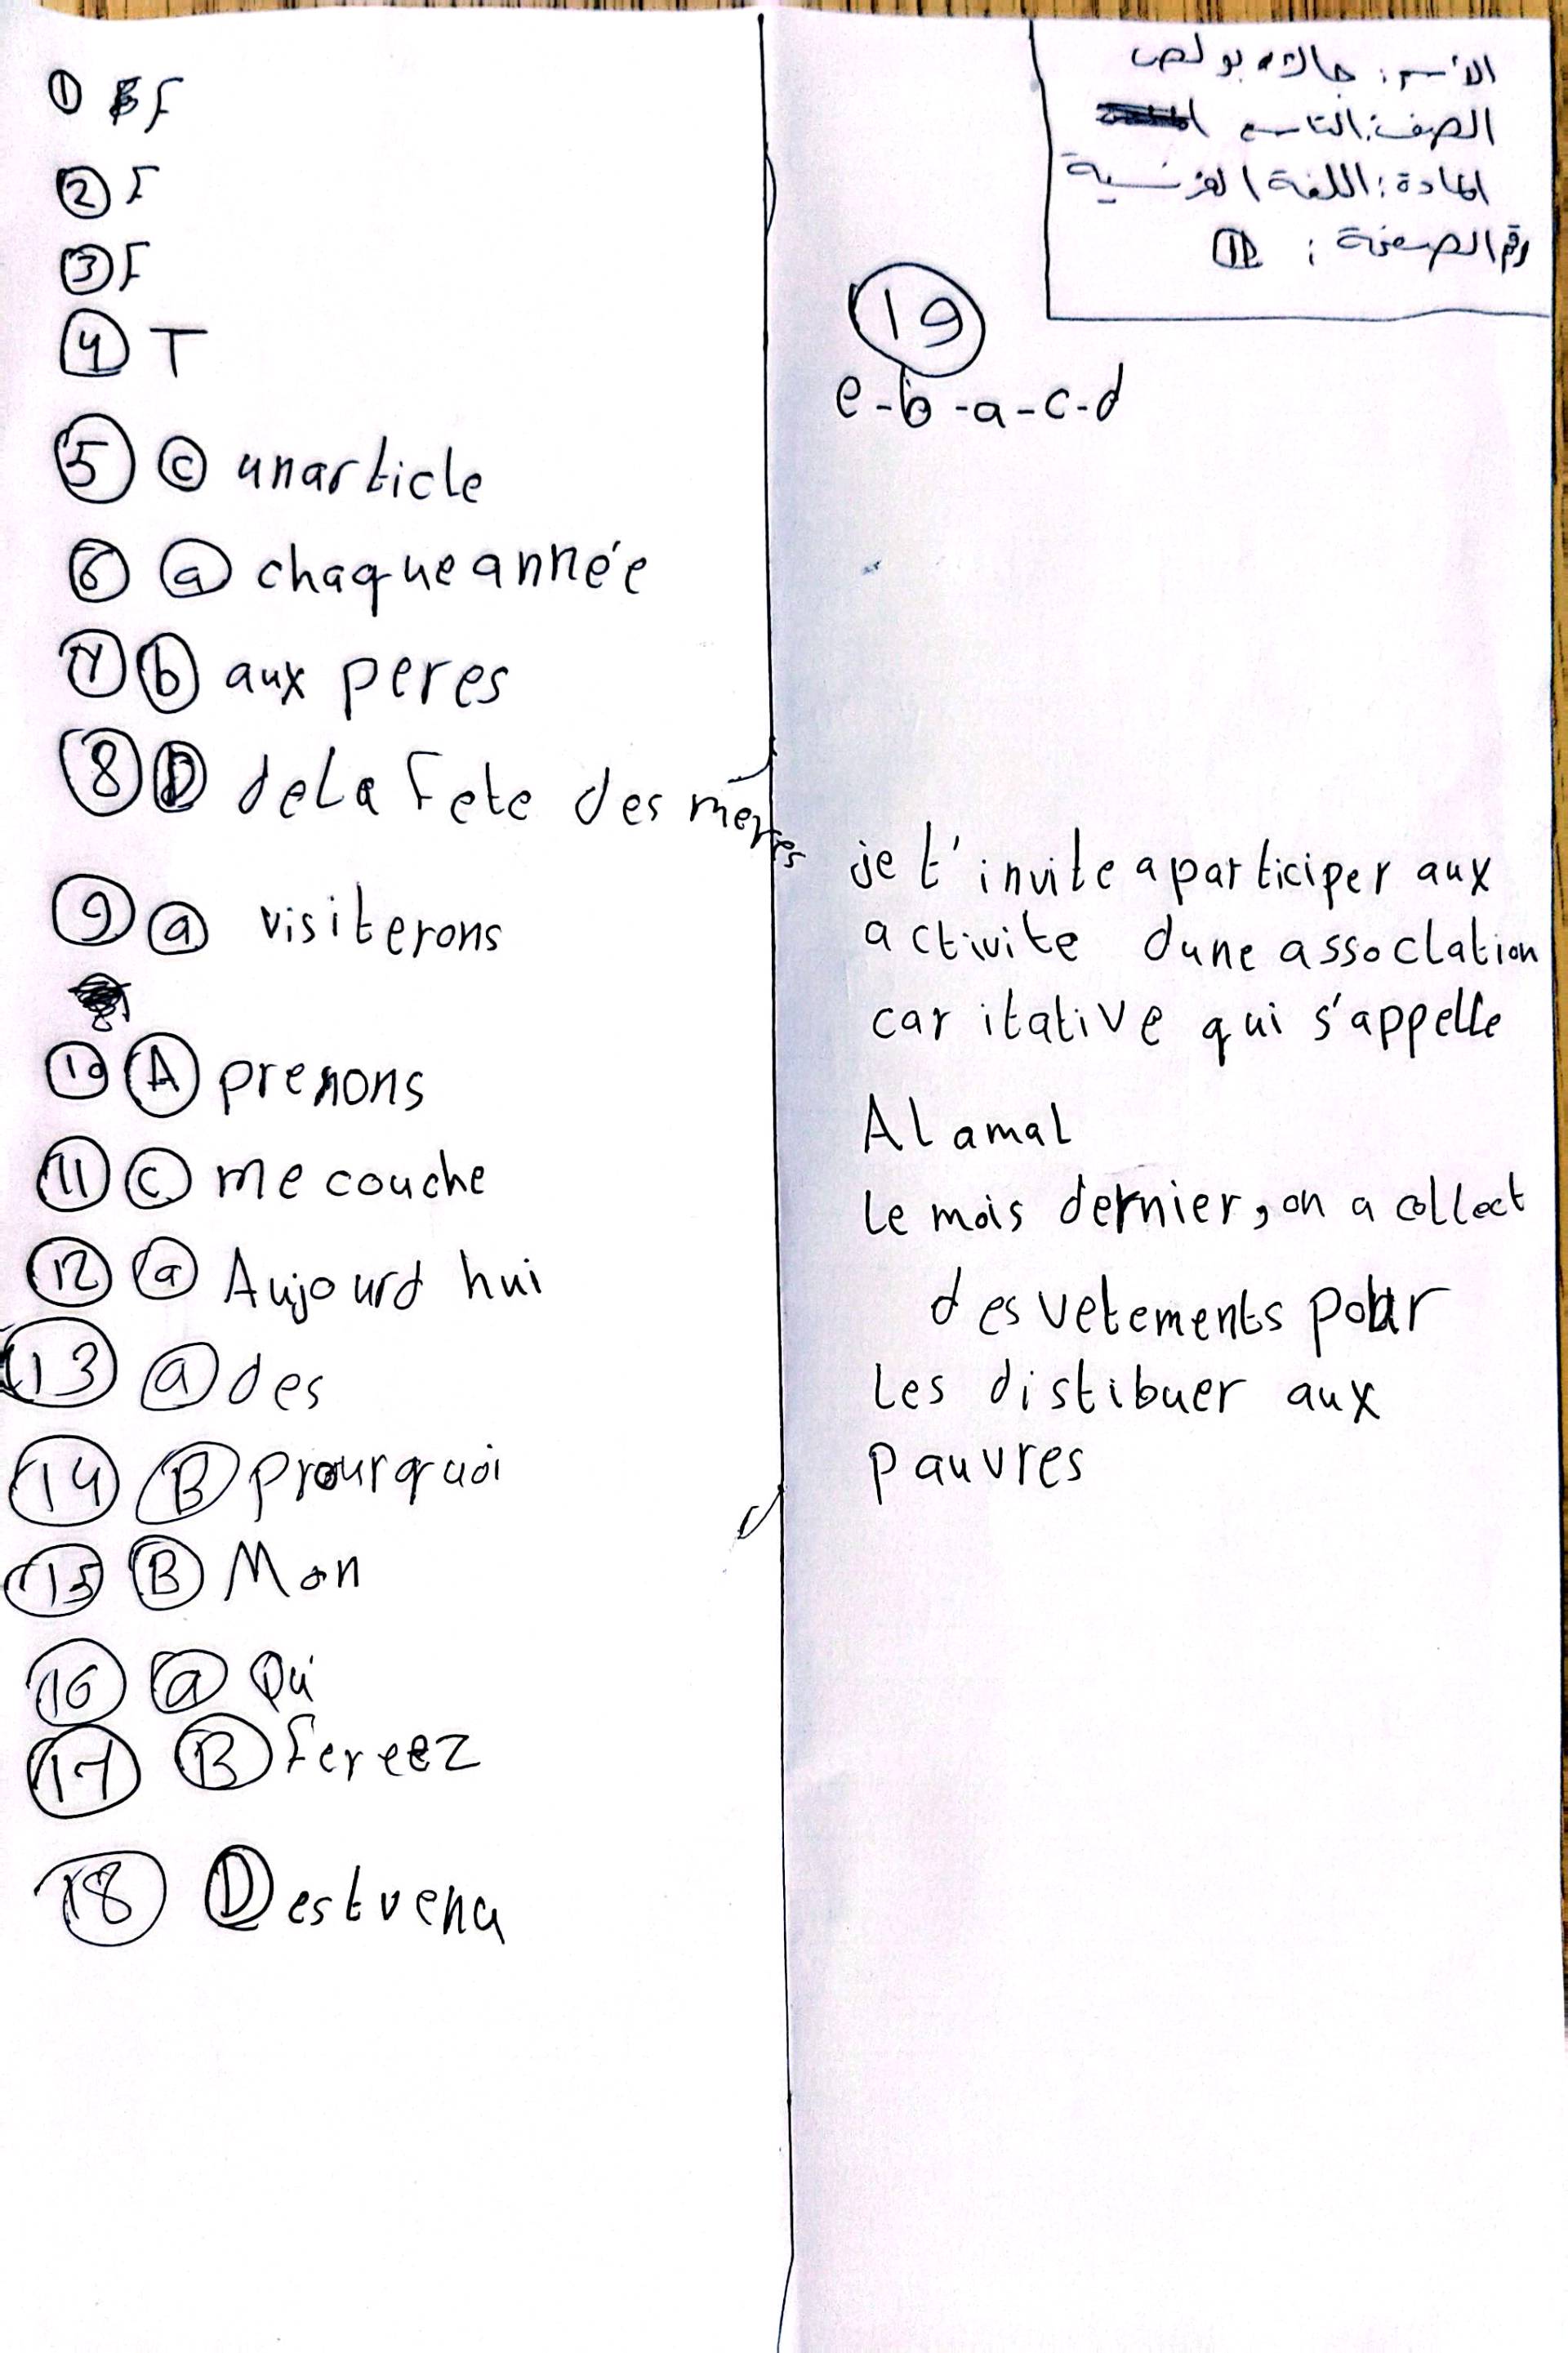 الأسم: جاك بولص
الصف: التاسع
المادة: اللغة الفرنسية
رقم الصفحة: ①
① F
② F
③ F
④ T
⑤ ⓒ un article
⑥ ⓐ chaque année
⑦ ⓑ aux peres
⑧ Ⓓ de la fete des mères
⑨ ⓐ visiterons
⑩ Ⓐ prenons
⑪ ⓒ me couche
⑫ ⓐ Aujourd hui
⑬ ⓐ des
⑭ Ⓑ prourquoi
⑮ Ⓑ Mon
⑯ ⓐ Qui
⑰ Ⓑ fereez
⑱ Ⓓ est venu
⑲
e-b-a-c-d
je t'invite a participer aux
activite dune assoclation
caritative qui s'appelle
Al amal
le mois dernier, on a collect
des vetements pour
les distibuer aux
pauvres